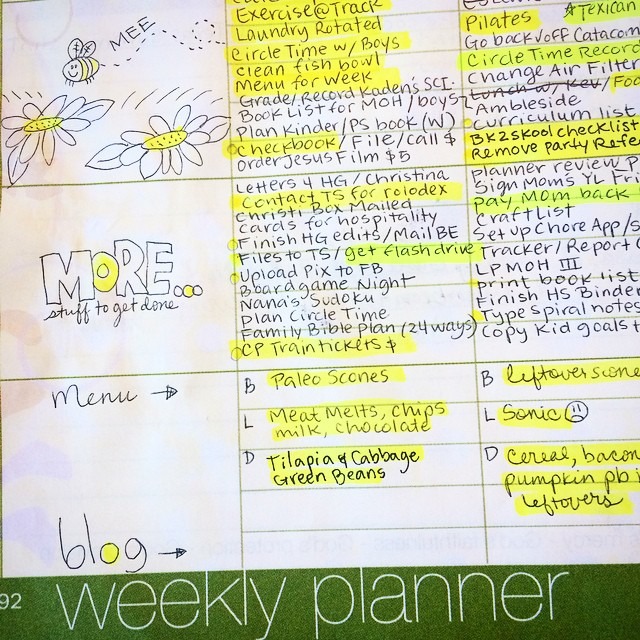 MEE
Exercise @ Track
Laundry Rotated
Circle Time w/ Boys
clean fish bowl
Menu for Week
Grade/Record Kaden's SCI.
Book List for MOH / boys
Plan Kinder/PS book (W)
Checkbook / File / call $
order Jesus Film $5
Pilates ☆Texican
Go back v/off Catacom
Circle Time Record
Change Air Filter
Lunch w/ Kev / Foo
Ambleside
curriculum list
BK2Skool checklist
Remove party Refe
MORE...
stuff to get done
Letters 4 HG / Christina
Contact TS for rolodex
Christi Box Mailed
cards for hospitality
Finish HG edits / Mail BE
Files to TS / get flash drive
Upload Pix to FB
Board game Night
Nana's Sudoku
Plan Circle Time
Family Bible Plan (24 ways)
CP Train tickets $
planner review P
Sign Mom's YL Fri
pay Mom back
Craft List
Set up Chore App/S
Tracker / Report C
LP MOH III
print book list
Finish HS Binder
Type spiral notes
Copy Kid goals t
menu →
B Paleo Scones
L Meat Melts, chips
milk, chocolate
D Tilapia & Cabbage
Green Beans
B leftover scone
L Sonic ☹
D Cereal, bacon
pumpkin pb
leftovers
blog →
92 weekly planner